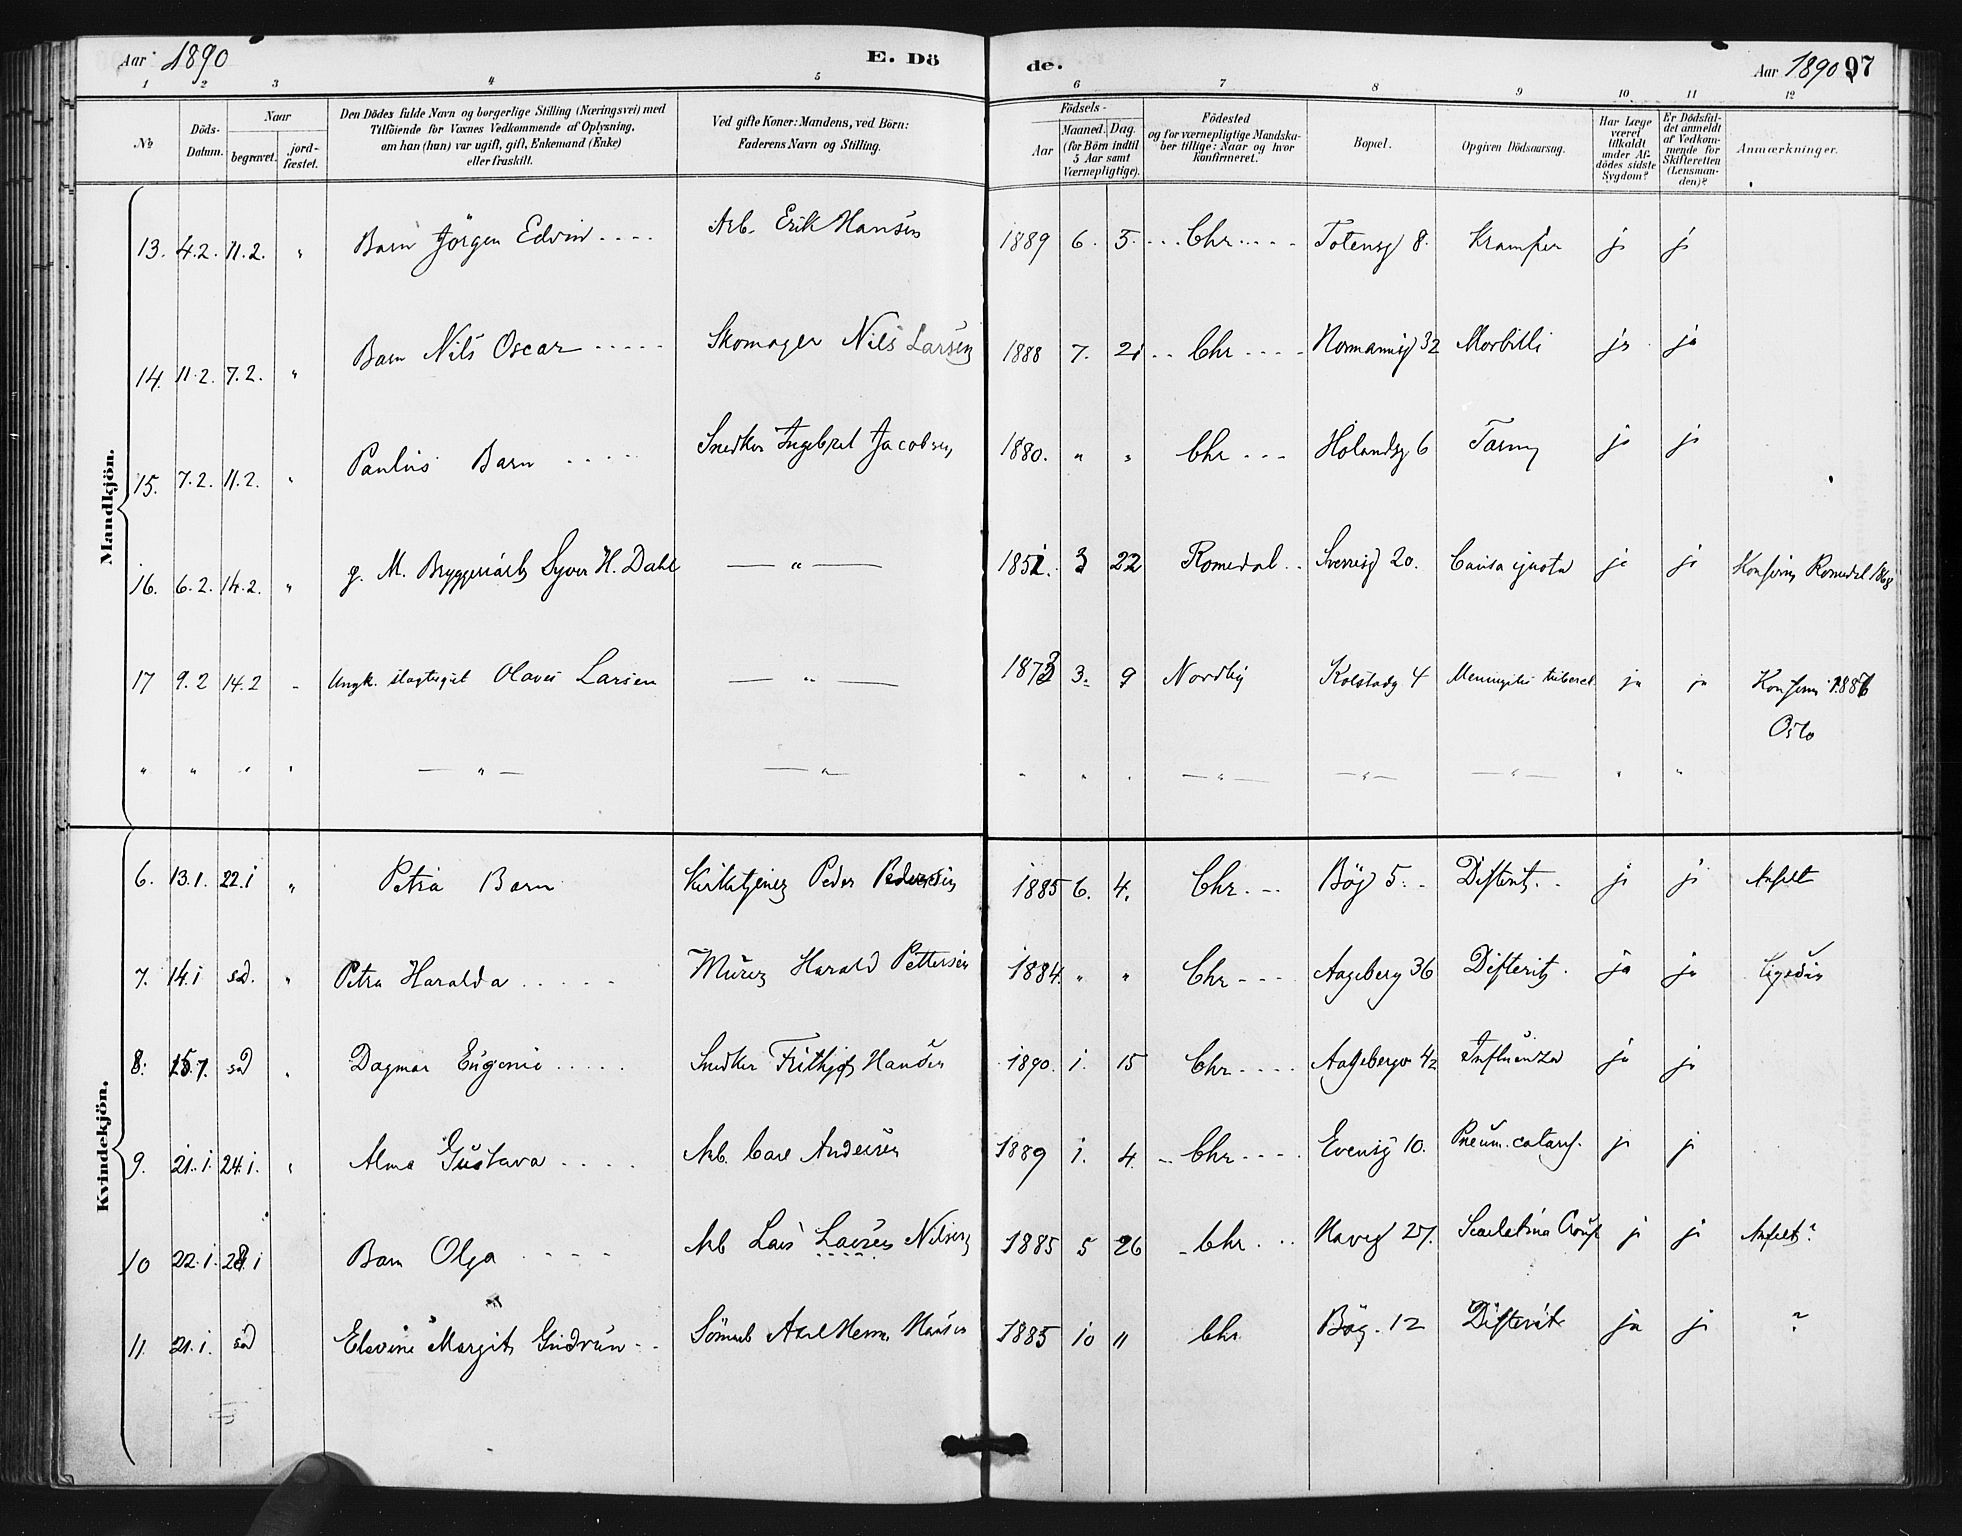 Aar 1890 E. Dö
de. Aar 1890 97
1 2 3 4 5
6 7 8 9 10 11 12
№
Döds-Datum.
Naar
begravet.
jord-fæstet.
Den Dödes fulde Navn og borgerlige Stilling (Næringsvei) med
Tilföiende for Voxnes Vedkommende af Oplysning,
om han (hun) var ugift, gift, Enkemand (Enke)
eller fraskilt.
Ved gifte Koner: Mandens, ved Börn:
Faderens Navn og Stilling.
Födsels-
Aar
Maaned. Dag.
(for Börn indtil
5 Aar samt
Værnepligtige).
Födested
og for værnepligtige Mandska-
ber tillige: Naar og hvor
konfirmeret.
Bopæl.
Opgiven Dödsaarsag.
Har Læge
været
tilkaldt
under Af-
dödes sidste
Sygdom?
Er Dödsfal-
det anmeldt
af Vedkom-
mende for
Skifteretten
(Lensman-
den)?
Anmærkninger.
Mandkjön.
13. 4.2. 11.2. " Barn Jörgen Edvin .... Arb. Erik Hansen 1889 6. 5. ... Chr .... Totensg 8. Kramper ja ja
14. 11.2. 7.2. " Barn Nils Oscar ..... Skomager Nils Larsen 1888 7. 21 .. Chr .... Normannsg 32 Morbilli ja ja
15. 7.2. 11.2. " Paulus Barn .... Snedker Ingebret Jacobsen 1880. " " Chr ... Hölandsg 6 ja ja
16. 6.2. 14.2. " g. M. Bryggeriarb Syver H. Dahl — " — 1851. 3 22 Romedal .. Sverresg 20. Causa ignota ja ja Konfirm Romedal 1868
17 9.2 14.2 " Ungk. Olaves Larsen — " — 1873 3. 9 Nordby Kolstadg 4 Meningitis tubercl. ja ja Konfirm 1887
Oslo
" " " " — " — — " — " " " — " — — " — — " — " "
Kvindekjön.
6. 13.1. 22.1 " Petra Barn Kirketjener Peder Pedersen 1885 6. 4. Chr. .. Bög 5. Difterit. .. ja ja Anfelt
7. 14.1 sad. " Petra Haralda ..... Murer Harald Pettersen 1884. " " Chr ... Aageberg 36 Difterit. ja ja Ligesaa
8. 15.1. sad " Dagmar Eugenie ..... Snedker Frithjof Hansen 1890. 1. 15 Chr .... Aageberg 42 Influenza ja ja
9. 21.1. 24.1. " Alma Gustava .... Arb. Carl Andersen 1889 1. 4. .. Chr .... Evensg 10. Pneum. catarrh. ja ja
10 22.1. 28.1 Barn Olga .... Arb Lars Larsen Nilsen 1885 5 26 . Chr .. Haveg 27. Scarlatina Croup ja ja Anfelt?
11. 21.1. sad Elevine Margit Gudrun .. Sömand Axel Herm. Hansen 1885 10 11 Chr Bög. 12 Difterit ja ja ?